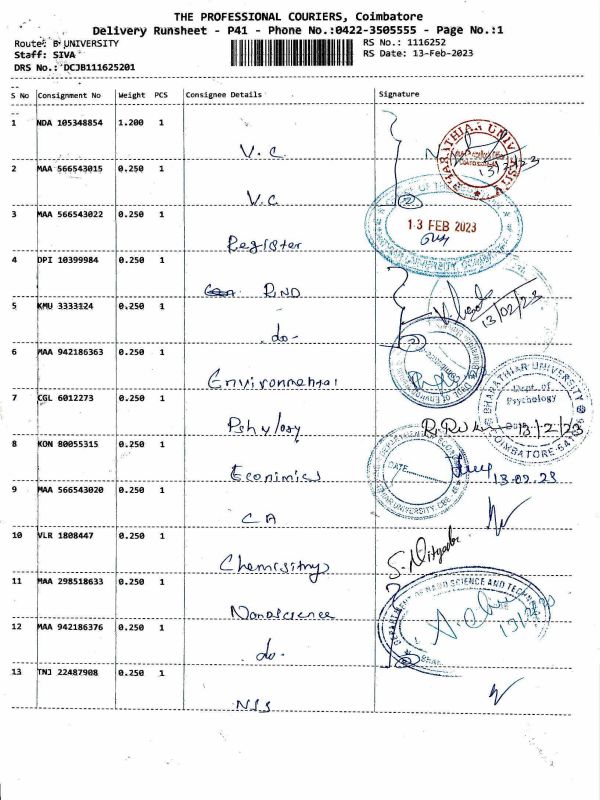 THE PROFESSIONAL COURIERS, Coimbatore
Delivery Runsheet - P41 - Phone No.:0422-3505555 - Page No.:1
Route: B UNIVERSITY
RS No.: 1116252
Staff: SIVA
RS Date: 13-Feb-2023
DRS No.: DCJB111625201
S No Consignment No Weight PCS Consignee Details Signature
1 NDA 105348854 1.200 1
V.C
2 MAA 566543015 0.250 1
V.C
3 MAA 566543022 0.250 1
13 FEB 2023
Register
4 DPI 10399984 0.250 1
RND
5 KMU 3333124 0.250 1
13/02/23
-do-
6 MAA 942186363 0.250 1
Environmental
7 CGL 6012273 0.250 1
BHARATHIAR UNIVERSITY
Dept. of
Psychology
COIMBATORE
13/2/23
Pshylosy
8 KON 80055315 0.250 1
DATE
13.02.23
Econimics
9 MAA 566543020 0.250 1
CA
10 VLR 1808447 0.250 1
Chemisitry
11 MAA 298518633 0.250 1
DEPARTMENT OF NANO SCIENCE AND TECHN
Nanoscience
12 MAA 942186376 0.250 1
-do-
13 TNJ 22487908 0.250 1
NSS